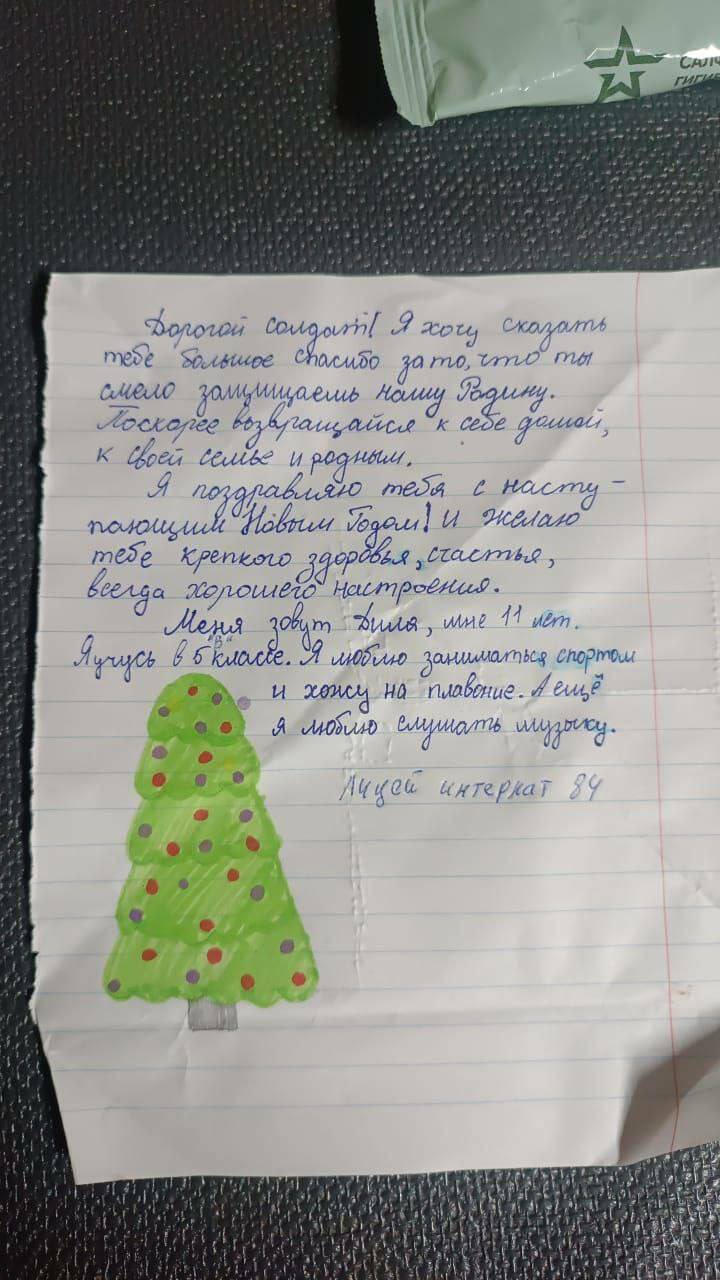 САЛФ
ГИГИ
Дорогой солдат! Я хочу сказать
тебе большое спасибо за то, что ты
смело защищаешь нашу Родину.
Поскорее возвращайся к себе домой,
к своей семье и родным.
Я поздравляю тебя с насту-
пающим Новым Годом! И желаю
тебе крепкого здоровья, счастья,
всегда хорошего настроения.
Меня зовут Диля, мне 11 лет.
Я учусь в 5 "В" классе. Я люблю заниматься спортом
и хожу на плавание. А ещё
я люблю слушать музыку.
Лицей интернат 84